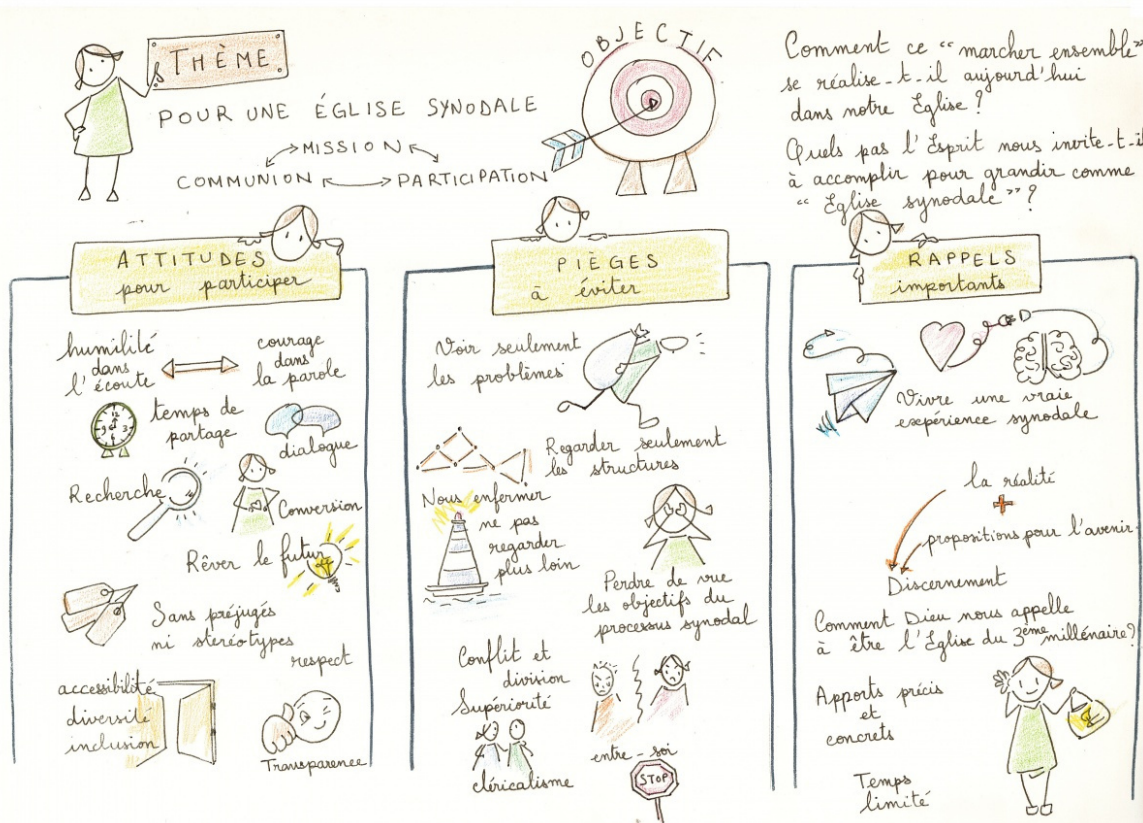 THÈME
POUR UNE ÉGLISE SYNODALE
MISSION
COMMUNION
PARTICIPATION
OBJECTIF
Comment ce "marcher ensemble"
se réalise-t-il aujourd'hui
dans notre Église ?
Quels pas l'Esprit nous invite-t-il
à accomplir pour grandir comme
"Église synodale" ?
ATTITUDES
pour participer
humilité
dans
l'écoute
courage
dans
la parole
temps de
partage
dialogue
Recherche
Conversion
Rêver le futur
Sans préjugés
ni stéréotypes
respect
accessibilité
diversité
inclusion
Transparence
PIÈGES
à éviter
Voir seulement
les problèmes
Regarder seulement
les structures
Nous enfermer
ne pas
regarder
plus loin
Perdre de vue
les objectifs du
processus synodal
Conflit et
division
Supériorité
cléricalisme
entre-soi
STOP
RAPPELS
importants
Vivre une vraie
expérience synodale
la réalité
+
propositions pour l'avenir
Discernement
Comment Dieu nous appelle
à être l'Église du 3ème millénaire?
Apports précis
et
concrets
Temps
limité